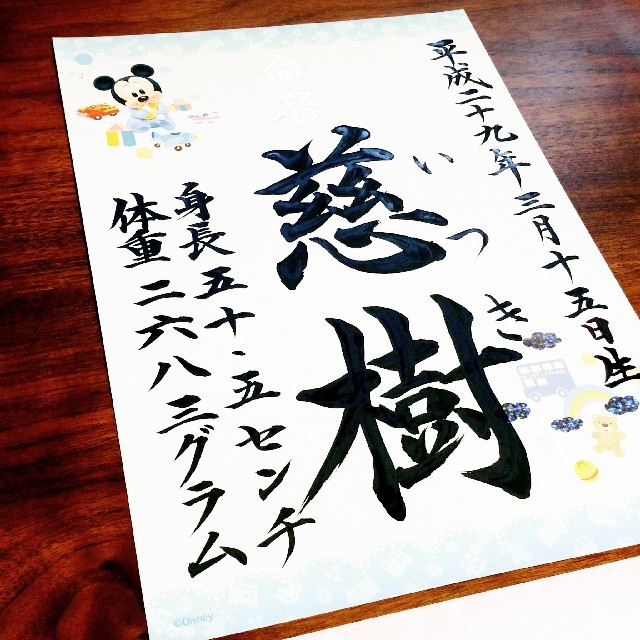 平成二十九年三月十五日生
命名
いつき
慈樹
身長五十・五センチ
体重二六八三グラム
©Disney